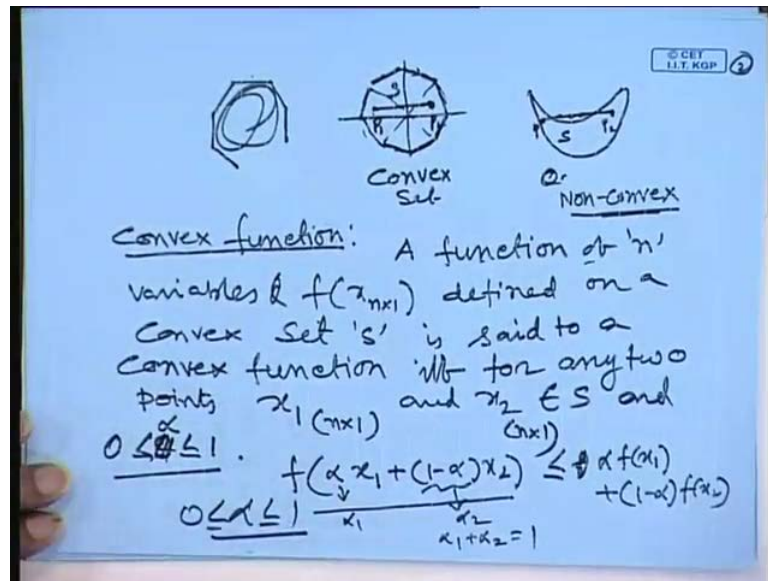 © CET
I.I.T. KGP
2
S
P1 P2
Convex
Set
P1 P2
S
Non-Convex
Convex function: A function of 'n'
variables & f(x_{n×1}) defined on a
Convex Set 's' is said to a
Convex function iff for any two
points x_{1 (n×1)} and x_{2 (n×1)} ∈ S and
0 ≤ α ≤ 1.
f(α x_1 + (1-α) x_2) ≤ α f(x_1)
+ (1-α) f(x_2)
0 ≤ α ≤ 1
α_1 α_2
α_1 + α_2 = 1